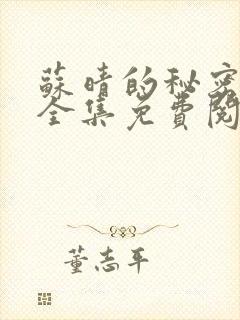 蘇晴的秘密
全集免費閱
董志平